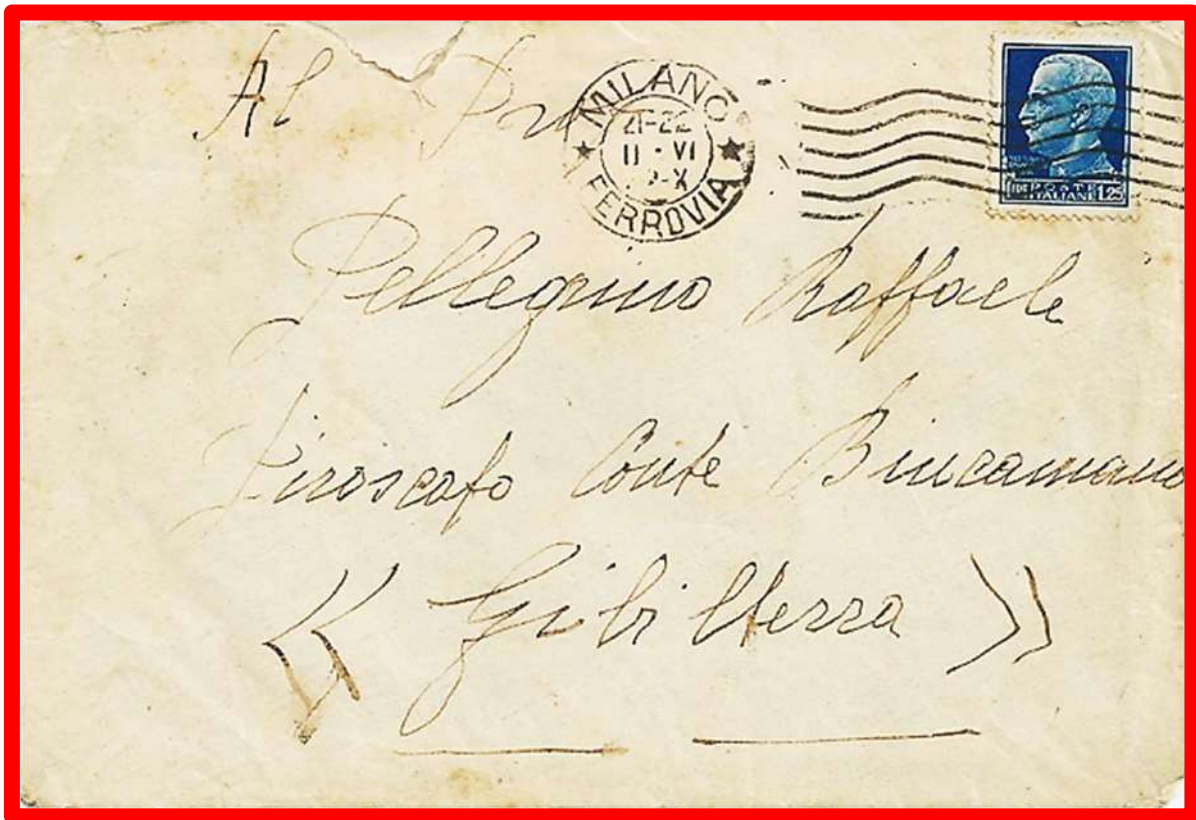 Al
MILANO
21-22
11·VI
FERROVIA
POSTE
ITALIANE 1,25
Pellegrino Raffaele
Piroscafo Conte Biancamano
« Gibilterra »